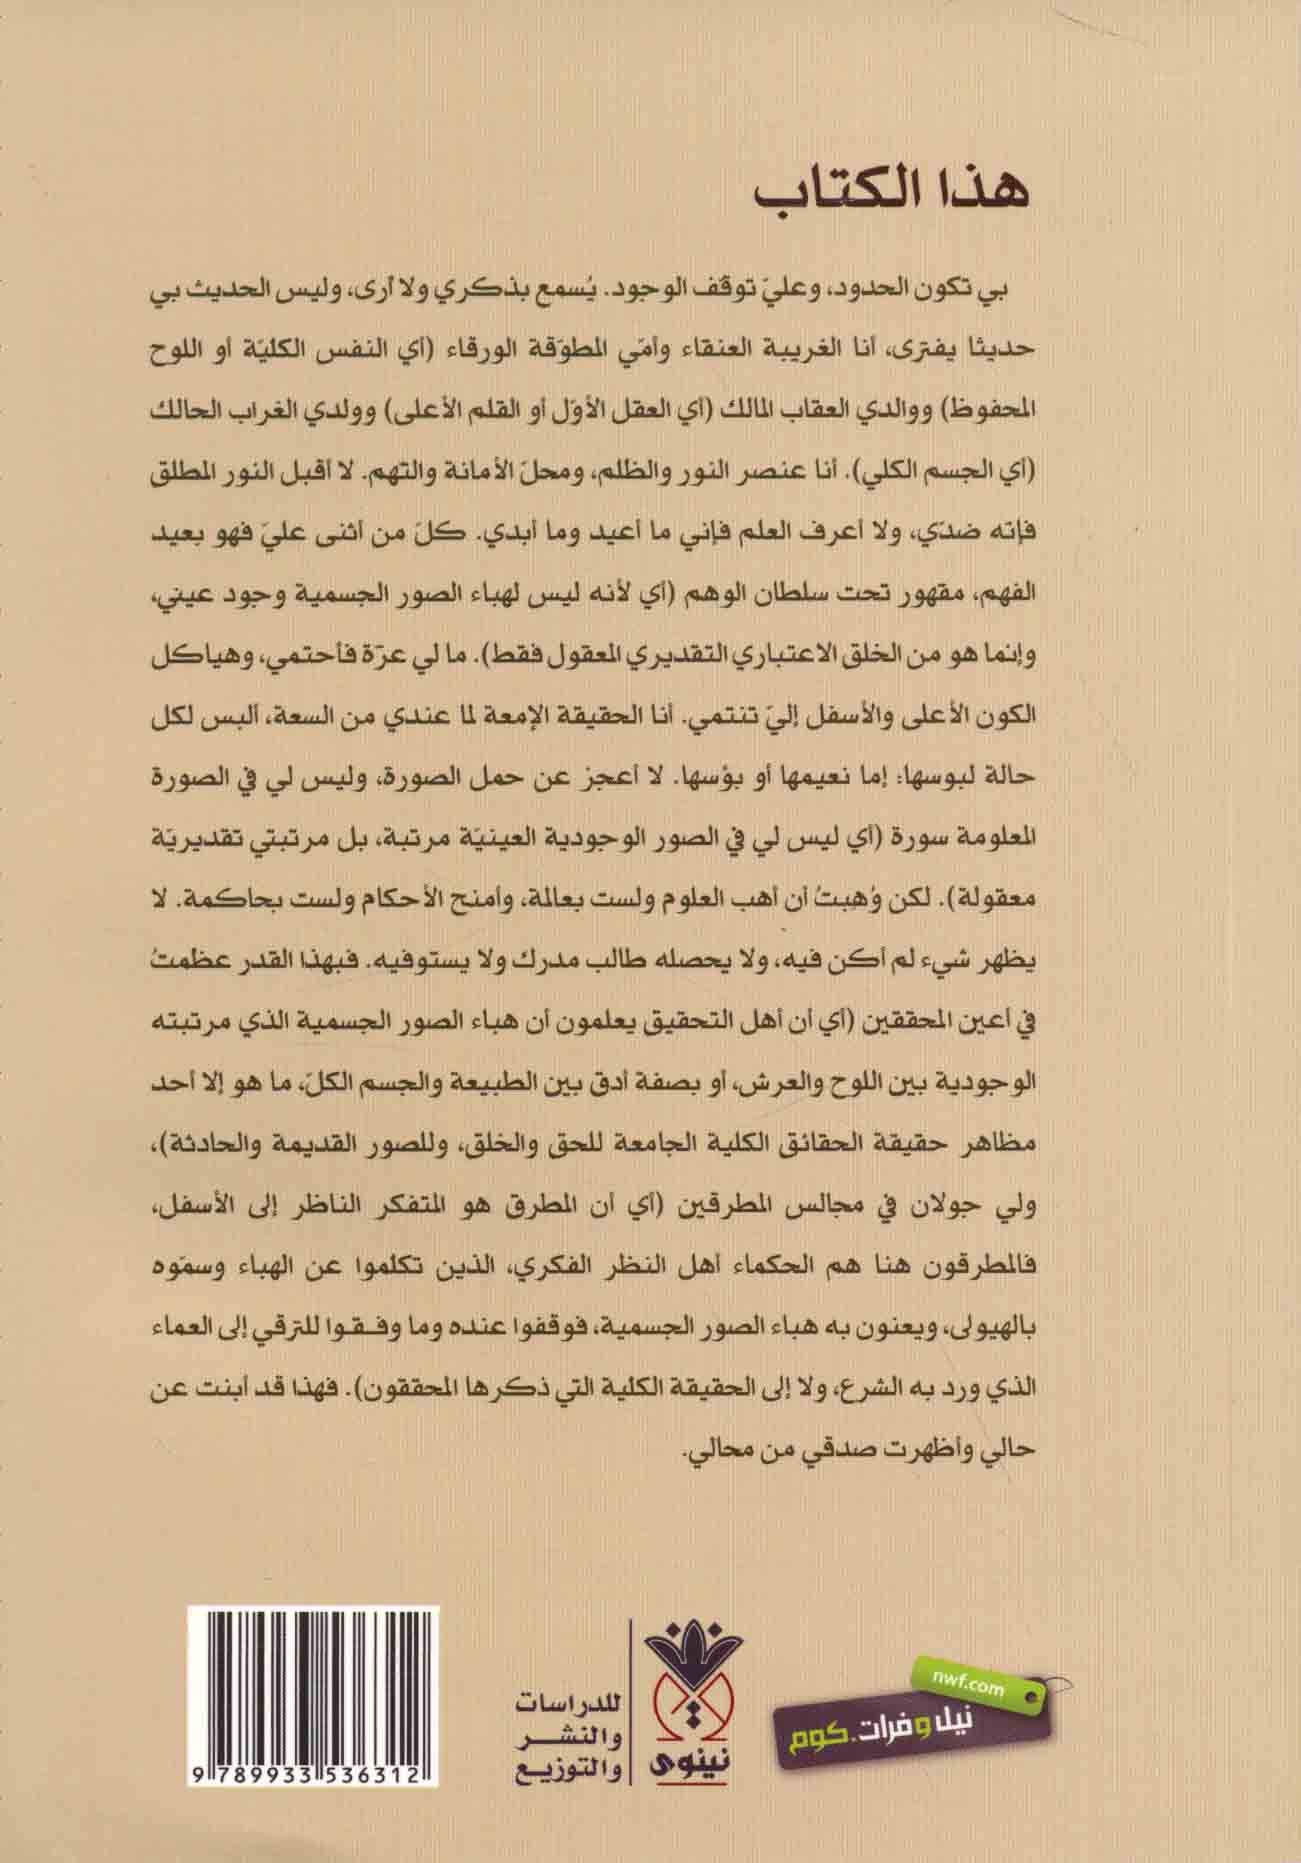 هذا الكتاب
بي تكون الحدود، وعليّ توقّف الوجود. يُسمع بذكري ولا أرى، وليس الحديث بي
حديثا يفترى، أنا الغريبة العنقاء وأمّي المطوّقة الورقاء (أي النفس الكليّة أو اللوح
المحفوظ) ووالدي العقاب المالك (أي العقل الأوّل أو القلم الأعلى) وولدي الغراب الحالك
(أي الجسم الكلي). أنا عنصر النور والظلم، ومحلّ الأمانة والتهم. لا أقبل النور المطلق
فإنّه ضدّي، ولا أعرف العلم فإني ما أعيد وما أبدي. كلّ من أثنى عليّ فهو بعيد
الفهم، مقهور تحت سلطان الوهم (أي لأنه ليس لهباء الصور الجسمية وجود عيني،
وإنما هو من الخلق الاعتباري التقديري المعقول فقط). ما لي عزّة فأحتمي، وهياكل
الكون الأعلى والأسفل إليّ تنتمي. أنا الحقيقة الإمعة لما عندي من السعة، ألبس لكل
حالة لبوسها: إما نعيمها أو بؤسها. لا أعجز عن حمل الصورة، وليس لي في الصورة
المعلومة سورة (أي ليس لي في الصور الوجودية العينيّة مرتبة، بل مرتبتي تقديريّة
معقولة). لكن وُهِبتُ أن أهب العلوم ولست بعالمة، وأمنح الأحكام ولست بحاكمة. لا
يظهر شيء لم أكن فيه، ولا يحصله طالب مدرك ولا يستوفيه. فبهذا القدر عظمتُ
في أعين المحققين (أي أن أهل التحقيق يعلمون أن هباء الصور الجسمية الذي مرتبته
الوجودية بين اللوح والعرش، أو بصفة أدق بين الطبيعة والجسم الكلّ، ما هو إلا أحد
مظاهر حقيقة الحقائق الكلية الجامعة للحق والخلق، وللصور القديمة والحادثة)،
ولي جولان في مجالس المطرقين (أي أن المطرق هو المتفكر الناظر إلى الأسفل،
فالمطرقون هنا هم الحكماء أهل النظر الفكري، الذين تكلموا عن الهباء وسمّوه
بالهيولى، ويعنون به هباء الصور الجسمية، فوقفوا عنده وما وفقوا للترقي إلى العماء
الذي ورد به الشرع، ولا إلى الحقيقة الكلية التي ذكرها المحققون). فهذا قد أبنت عن
حالي وأظهرت صدقي من محالي.
nwf.com
نيل وفرات.كوم
نينوى
للدراسات
والنشر
والتوزيع
9 789933 536312